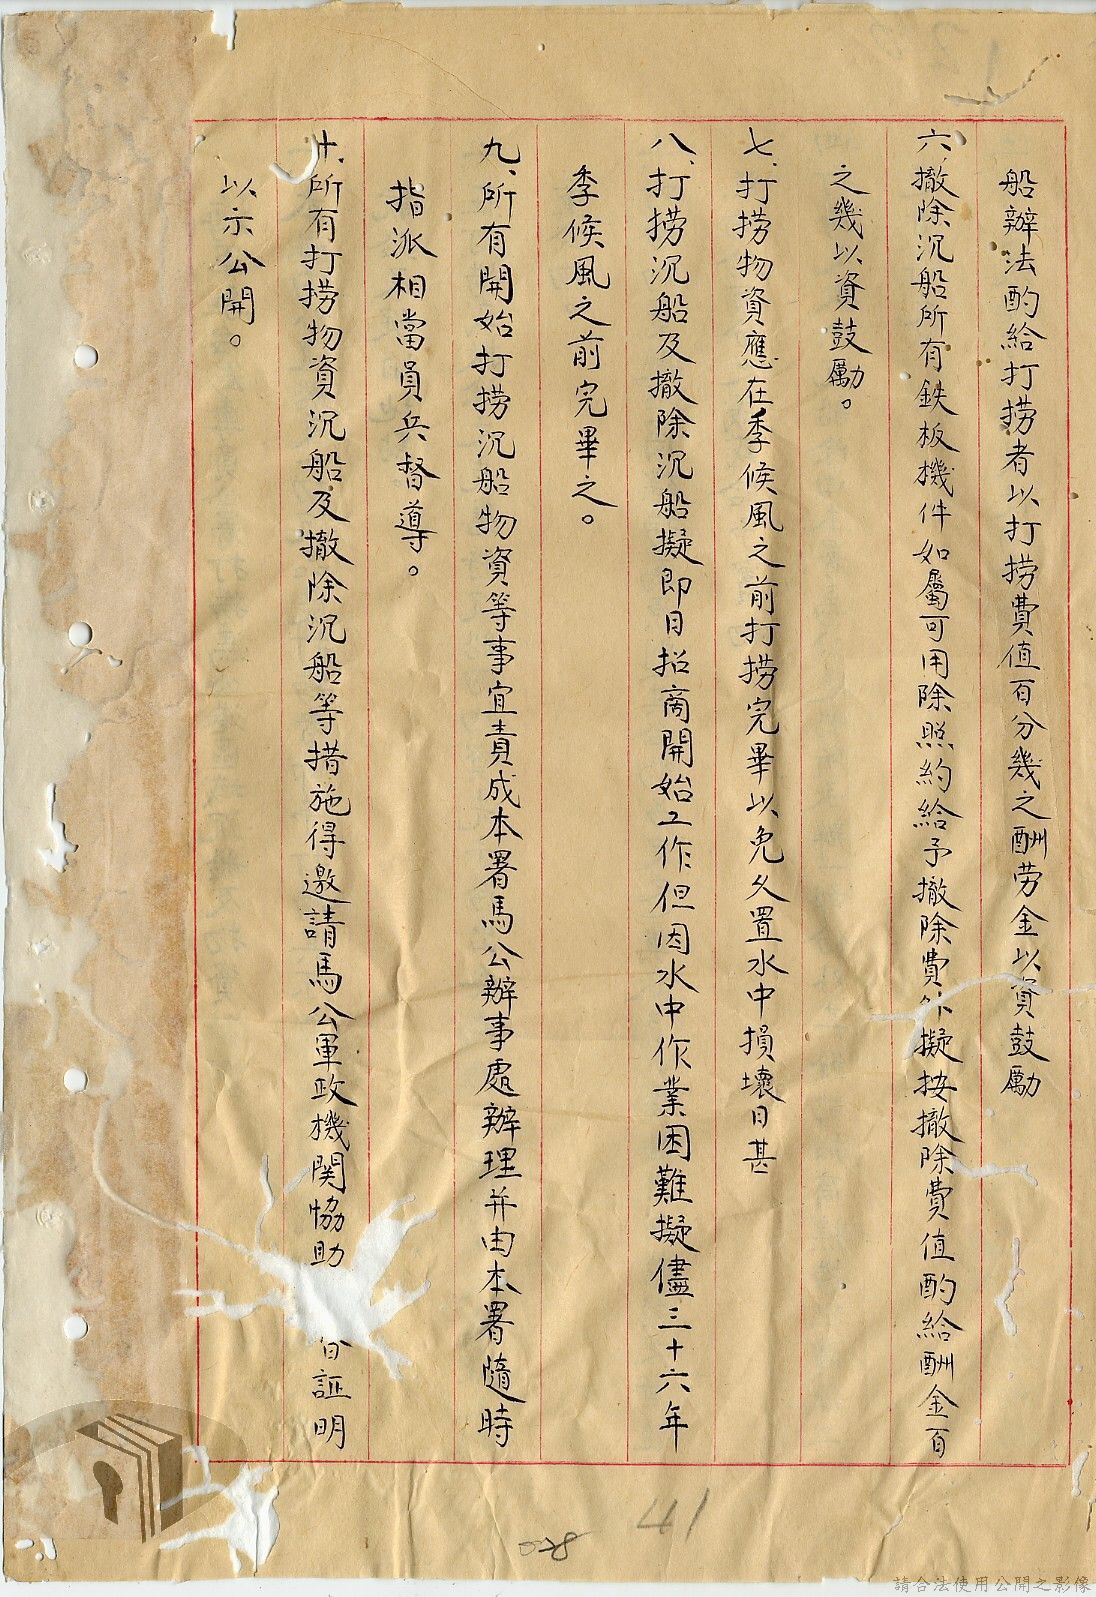 船辦法酌給打撈者以打撈費值百分幾之酬劳金以資鼓勵
六、撤除沉船所有鉄板機件如屬可用除照約給予撤除費外擬按撤除費值酌給酬金百
之幾以資鼓勵。
七、打撈物資應在季候風之前打撈完畢以免久置水中損壞日甚
八、打撈沉船及撤除沉船擬即日招商開始工作但因水中作業困難擬儘三十六年
季候風之前完畢之。
九、所有開始打撈沉船物資等事宜責成本署馬公辦事處辦理并由本署隨時
指派相當員兵督導。
十、所有打撈物資沉船及撤除沉船等措施得邀請馬公軍政機関協助 証明
以示公開。
41
028
請合法使用公開之影像